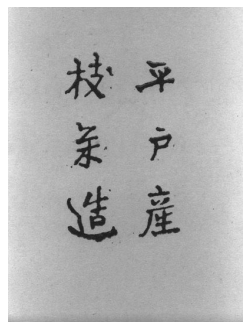 平戸産
枝栄造